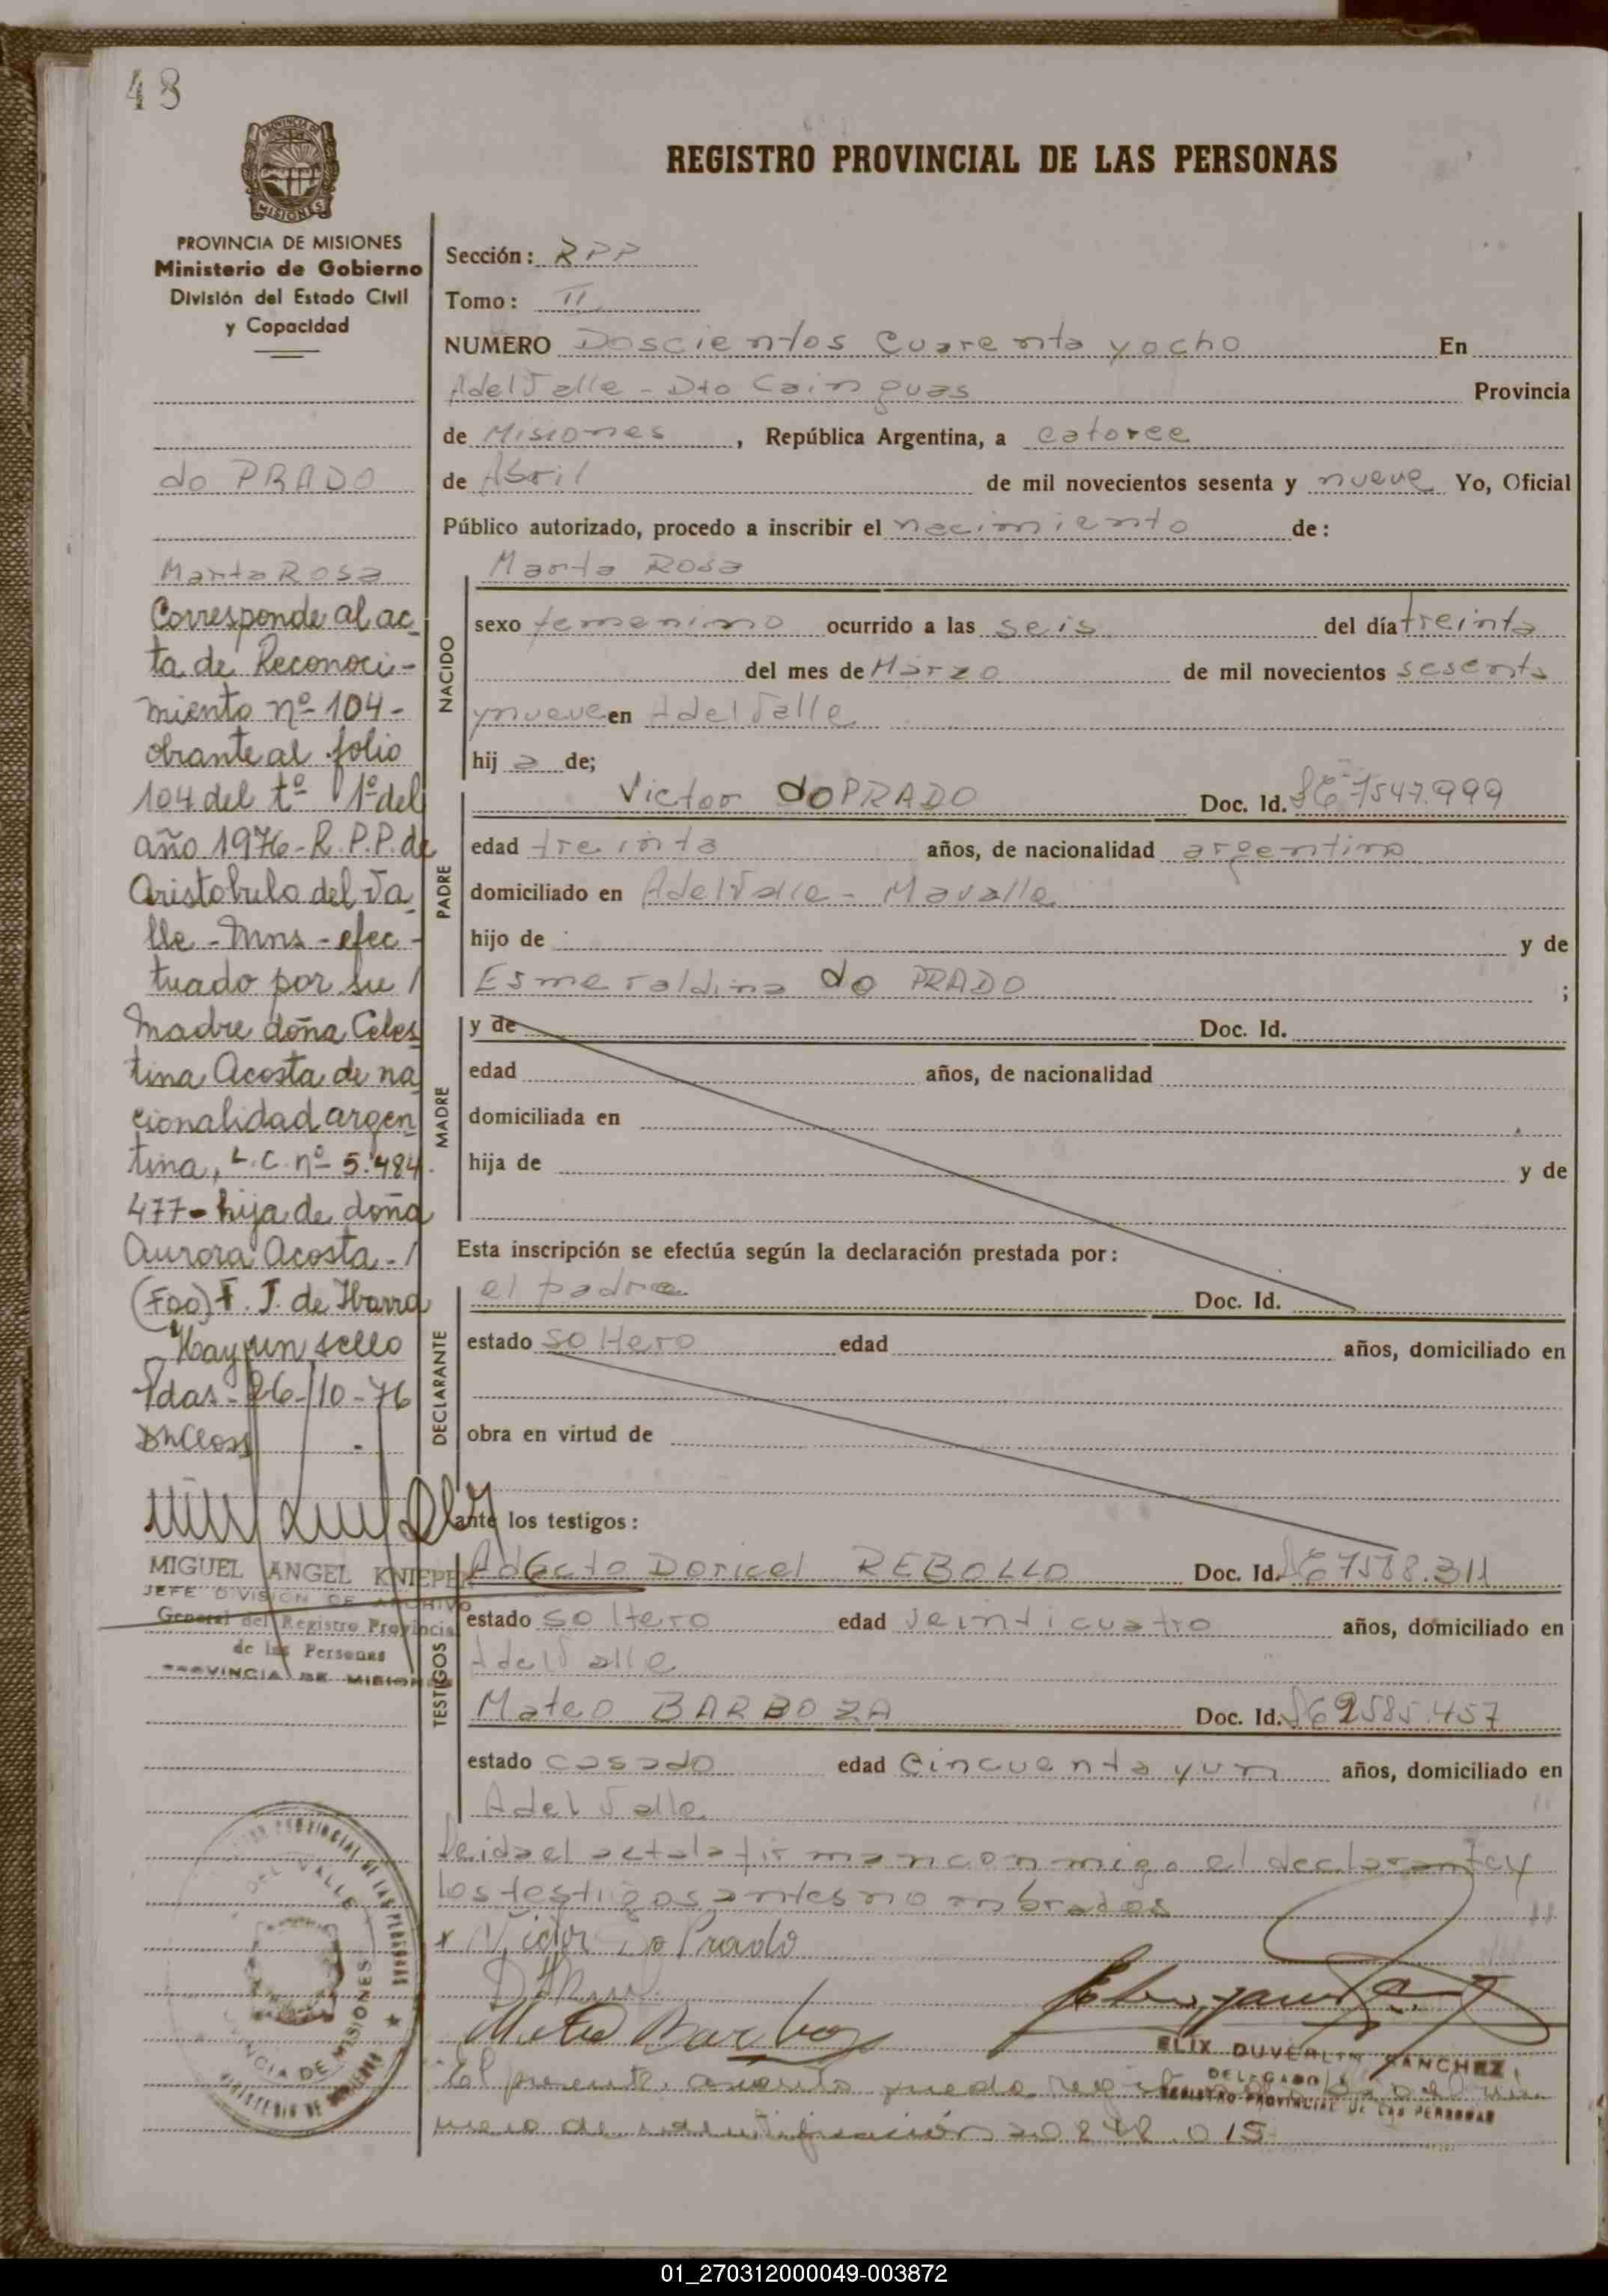 48
REGISTRO PROVINCIAL DE LAS PERSONAS
MISIONES
PROVINCIA DE MISIONES
Ministerio de Gobierno
División del Estado Civil
y Capacidad
do PRADO
Marta Rosa
Corresponde al ac
ta de Reconoci-
miento nº 104-
obrante al folio
104 del tº 1º del
año 1976- R.P.P. de
Aristobulo del Va
lle - Mns - efec-
tuado por su /
Madre doña Celes
tina Acosta de na
cionalidad argen
tina, L.C. nº 5.484.
477- hija de doña
Aurora Acosta - /
(Fdo) F. J. de Ibarra
Hay un sello
Pdas - 26-10-76
MIGUEL ANGEL KNIEPER
JEFE DIVISION DE ARCHIVO
General del Registro Provincial
de las Personas
PROVINCIA DE MISIONES
Sección: RPP
Tomo: II
NUMERO Doscientos Cuarenta y ocho En
AdelValle - Dto Cainguas Provincia
de Misiones, República Argentina, a catorce
de Abril de mil novecientos sesenta y nueve Yo, Oficial
Público autorizado, procedo a inscribir el nacimiento de:
NACIDO
Marta Rosa
sexo femenino ocurrido a las seis del día treinta
del mes de Marzo de mil novecientos sesenta
y nueve en AdelValle
hij a de;
PADRE
Victor do PRADO Doc. Id. 7547.999
edad treinta años, de nacionalidad argentina
domiciliado en AdelValle - Mavalle
hijo de y de
Esmeraldina do PRADO ;
MADRE
y de Doc. Id.
edad años, de nacionalidad
domiciliada en
hija de y de
Esta inscripción se efectúa según la declaración prestada por:
DECLARANTE
el padre Doc. Id.
estado soltero edad años, domiciliado en
obra en virtud de
ante los testigos:
TESTIGOS
Doricel REBOLLO Doc. Id. 7588.311
estado soltero edad Veinticuatro años, domiciliado en
AdelValle
Mateo BARBOZA Doc. Id. 2585.457
estado casado edad Cincuenta y un años, domiciliado en
AdelValle
Leida el acta la firman conmigo el declarante y
los testigos antes nombrados
x Victor Do Prado
Mateo Barboza
ELIX DUVERLIN SANCHEZ
DELEGADO
REGISTRO PROVINCIAL DE LAS PERSONAS
El presente asiento queda
mero de identificación 20.848.015
PROVINCIAL DE LAS PERSONAS
DEL VALLE
PROVINCIA DE MISIONES
MINISTERIO DE GOBIERNO
01_270312000049-003872